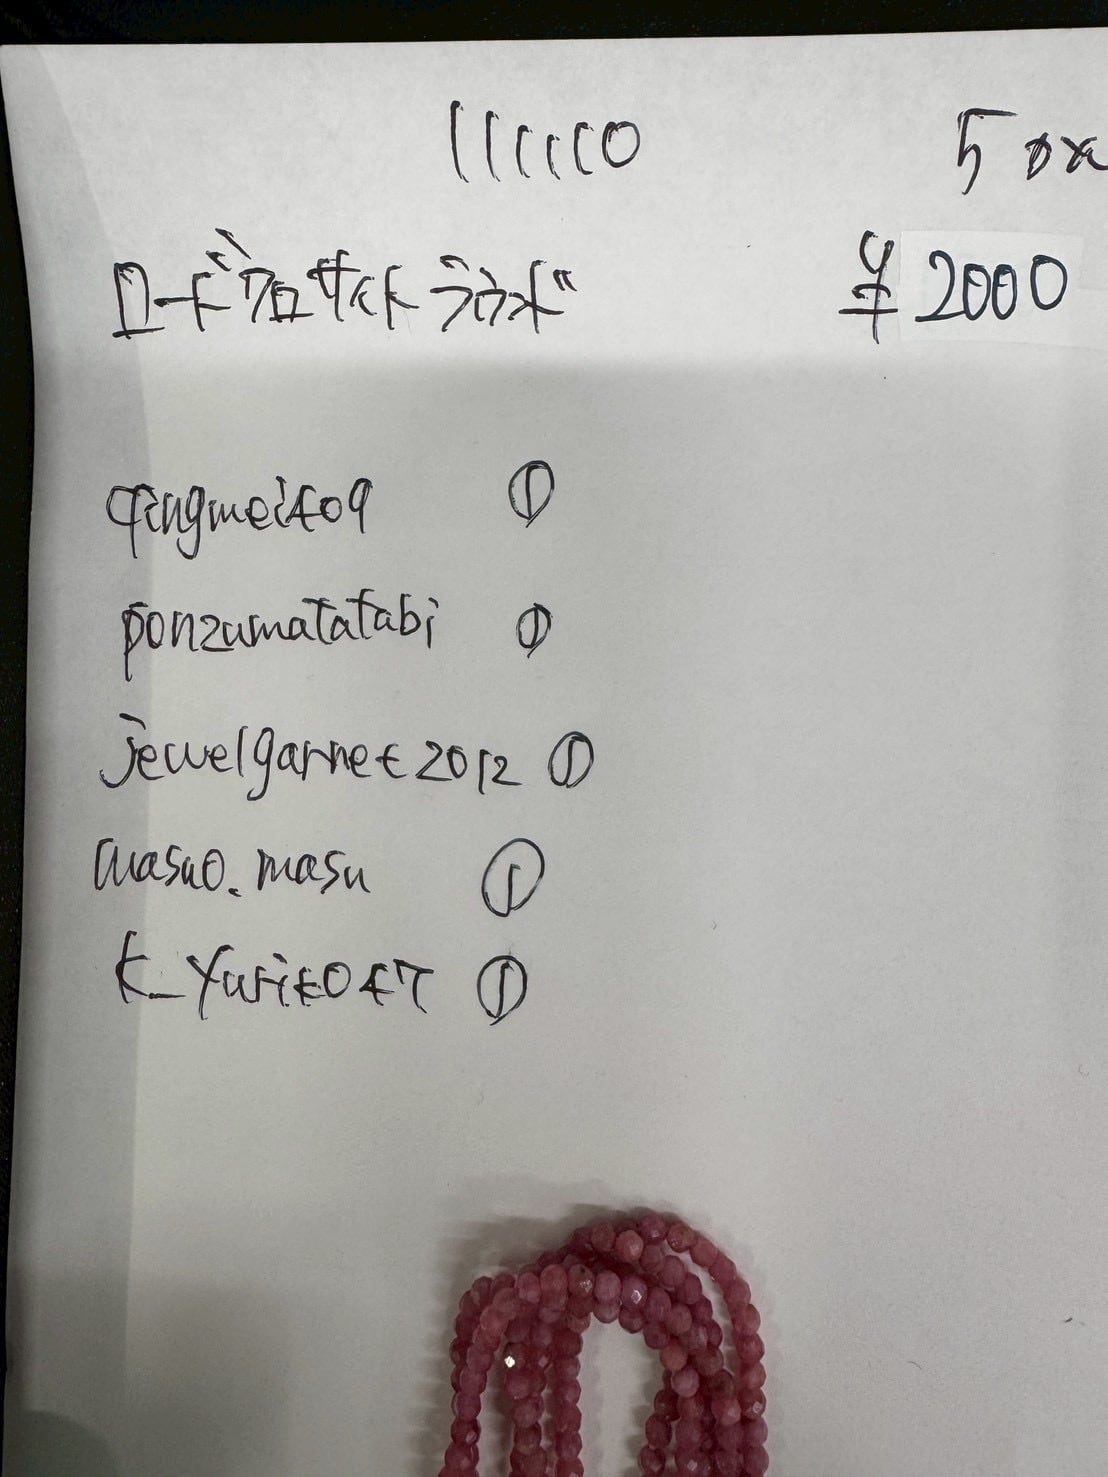 1111110
ロードクロサイトラウンド ¥2000
qingmei409 ①
ponzumatatabi ①
jewelgarnet2012 ①
masuo.masu ①
k_yuriko47 ①